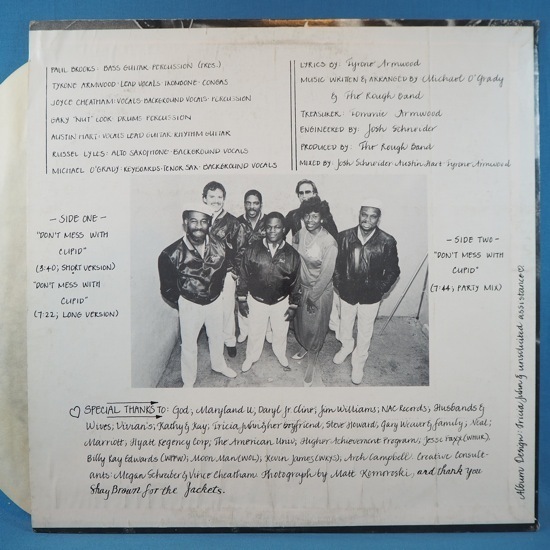 PAUL BROOKS: BASS GUITAR PERCUSSION (PRES.)
TYRONE ARMWOOD: LEAD VOCALS · TROMBONE · CONGAS
JOYCE CHEATHAM: VOCALS · BACKGROUND VOCALS · PERCUSSION
GARY "NUT" COOK: DRUMS PERCUSSION
AUSTIN HART: VOCALS LEAD GUITAR RHYTHM GUITAR
RUSSEL LYLES: ALTO SAXOPHONE · BACKGROUND VOCALS
MICHAEL O'GRADY: KEYBOARDS · TENOR SAX · BACKGROUND VOCALS
LYRICS BY: Tyrone Armwood
MUSIC WRITTEN & ARRANGED BY Michael O'Grady
& The Rough Band
TREASURER: Tommie Armwood
ENGINEERED BY: Josh Schneider
PRODUCED BY: The Rough Band
MIXED BY: Josh Schneider Austin Hart Tyrone Armwood
- SIDE ONE -
"DON'T MESS WITH
CUPID"
(3:40; SHORT VERSION)
"DON'T MESS WITH
CUPID"
(7:22; LONG VERSION)
- SIDE TWO -
"DON'T MESS WITH
CUPID"
(7:44; PARTY MIX)
SPECIAL THANKS TO: God, Maryland U, Daryl Jr. Cline, Jim Williams; NAC Records, Husbands &
Wives; Vivian's, Kathy & Kay, Tricia John & her boyfriend, Steve Howard, Gary Weaver & family, Neal;
Marriott, Hyatt Regency Corp; The American Univ; Higher Achievement Program; Jesse Faxx (WHUR),
Billy Ray Edwards (WPFW) Moon Man (WOL); Kevin James (WKYS), Arch Campbell. Creative Consult-
ants: Megan Schreiber & Vince Cheatham. Photograph by Matt Komoroski, and thank you
Shay Brown for the Jackets.
Album Design: Tricia John & unsolicited assistance